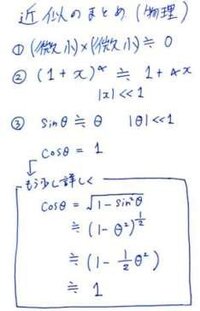 近似のまとめ(物理)
① (微小)×(微小)≒ 0
② (1+x)^α ≒ 1+αx
|x|<<1
③ sinθ≒θ |θ|<<1
cosθ = 1
もう少し詳しく
cosθ = √(1-sin²θ)
≒ (1-θ²)^(1/2)
≒ (1-½θ²)
≒ 1